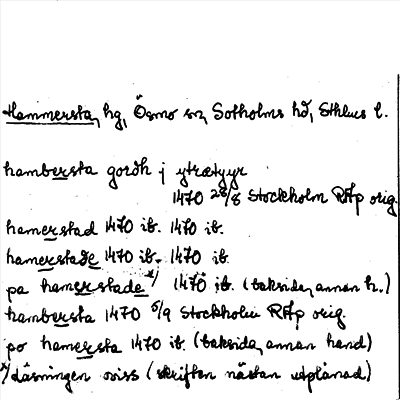 Hammersta, hg, Ösmo sn, Sotholms hd, Sthlms l.
hambersta gordh j ytrætyyr
1470 28/8 Stockholm RAp orig.
hamerstad 1470 ib. 1470 ib.
hamerstade 1470 ib. 1470 ib
pa hamerstade x) 1470 ib. (baksida, annan h.)
hambersta 1470 5/9 Stockholm RAp orig.
po hamersta 1470 ib. (baksida, annan hand)
x) Läsningen oviss (skriften nästan utplånad)